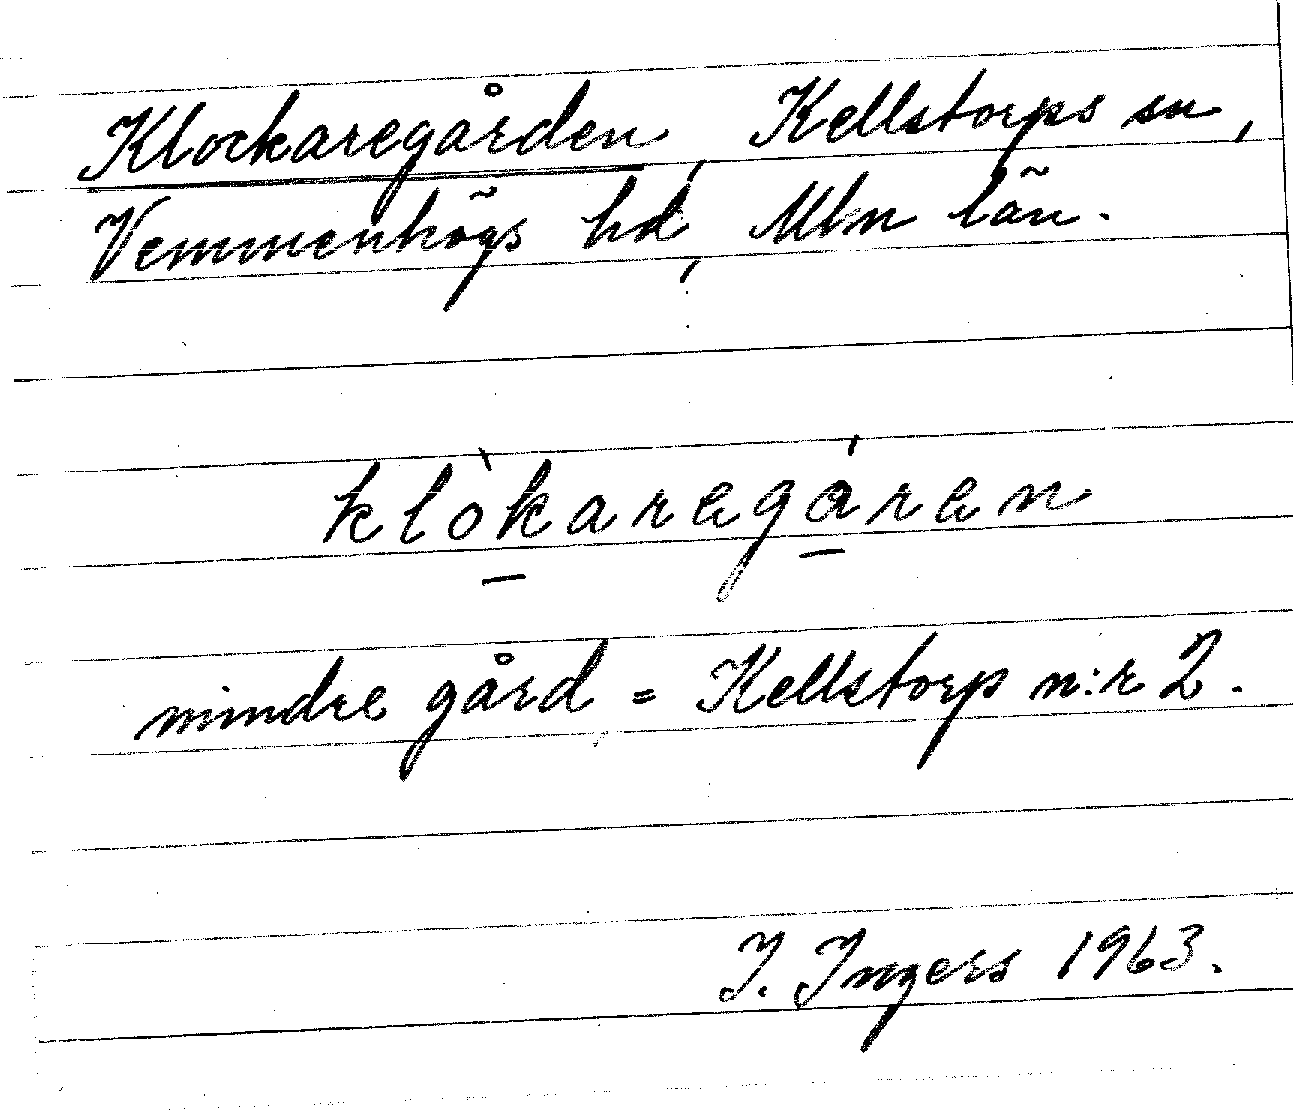 Klockaregården, Kellstorps sn,
Vemmenhögs hd, Mlm län.
klòkaregáren
mindre gård = Kellstorp n:r 2.
I. Ingers 1963.